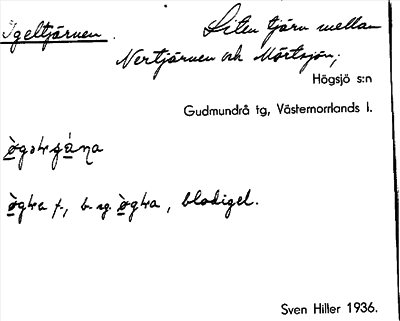 Igeltjärnen. Liten tjärn mellan
Nertjärnen och Mörtsjön;
Högsjö s:n
Gudmundrå tg, Västernorrlands l.
f., b. sg. , blodigel.
Sven Hiller 1936.